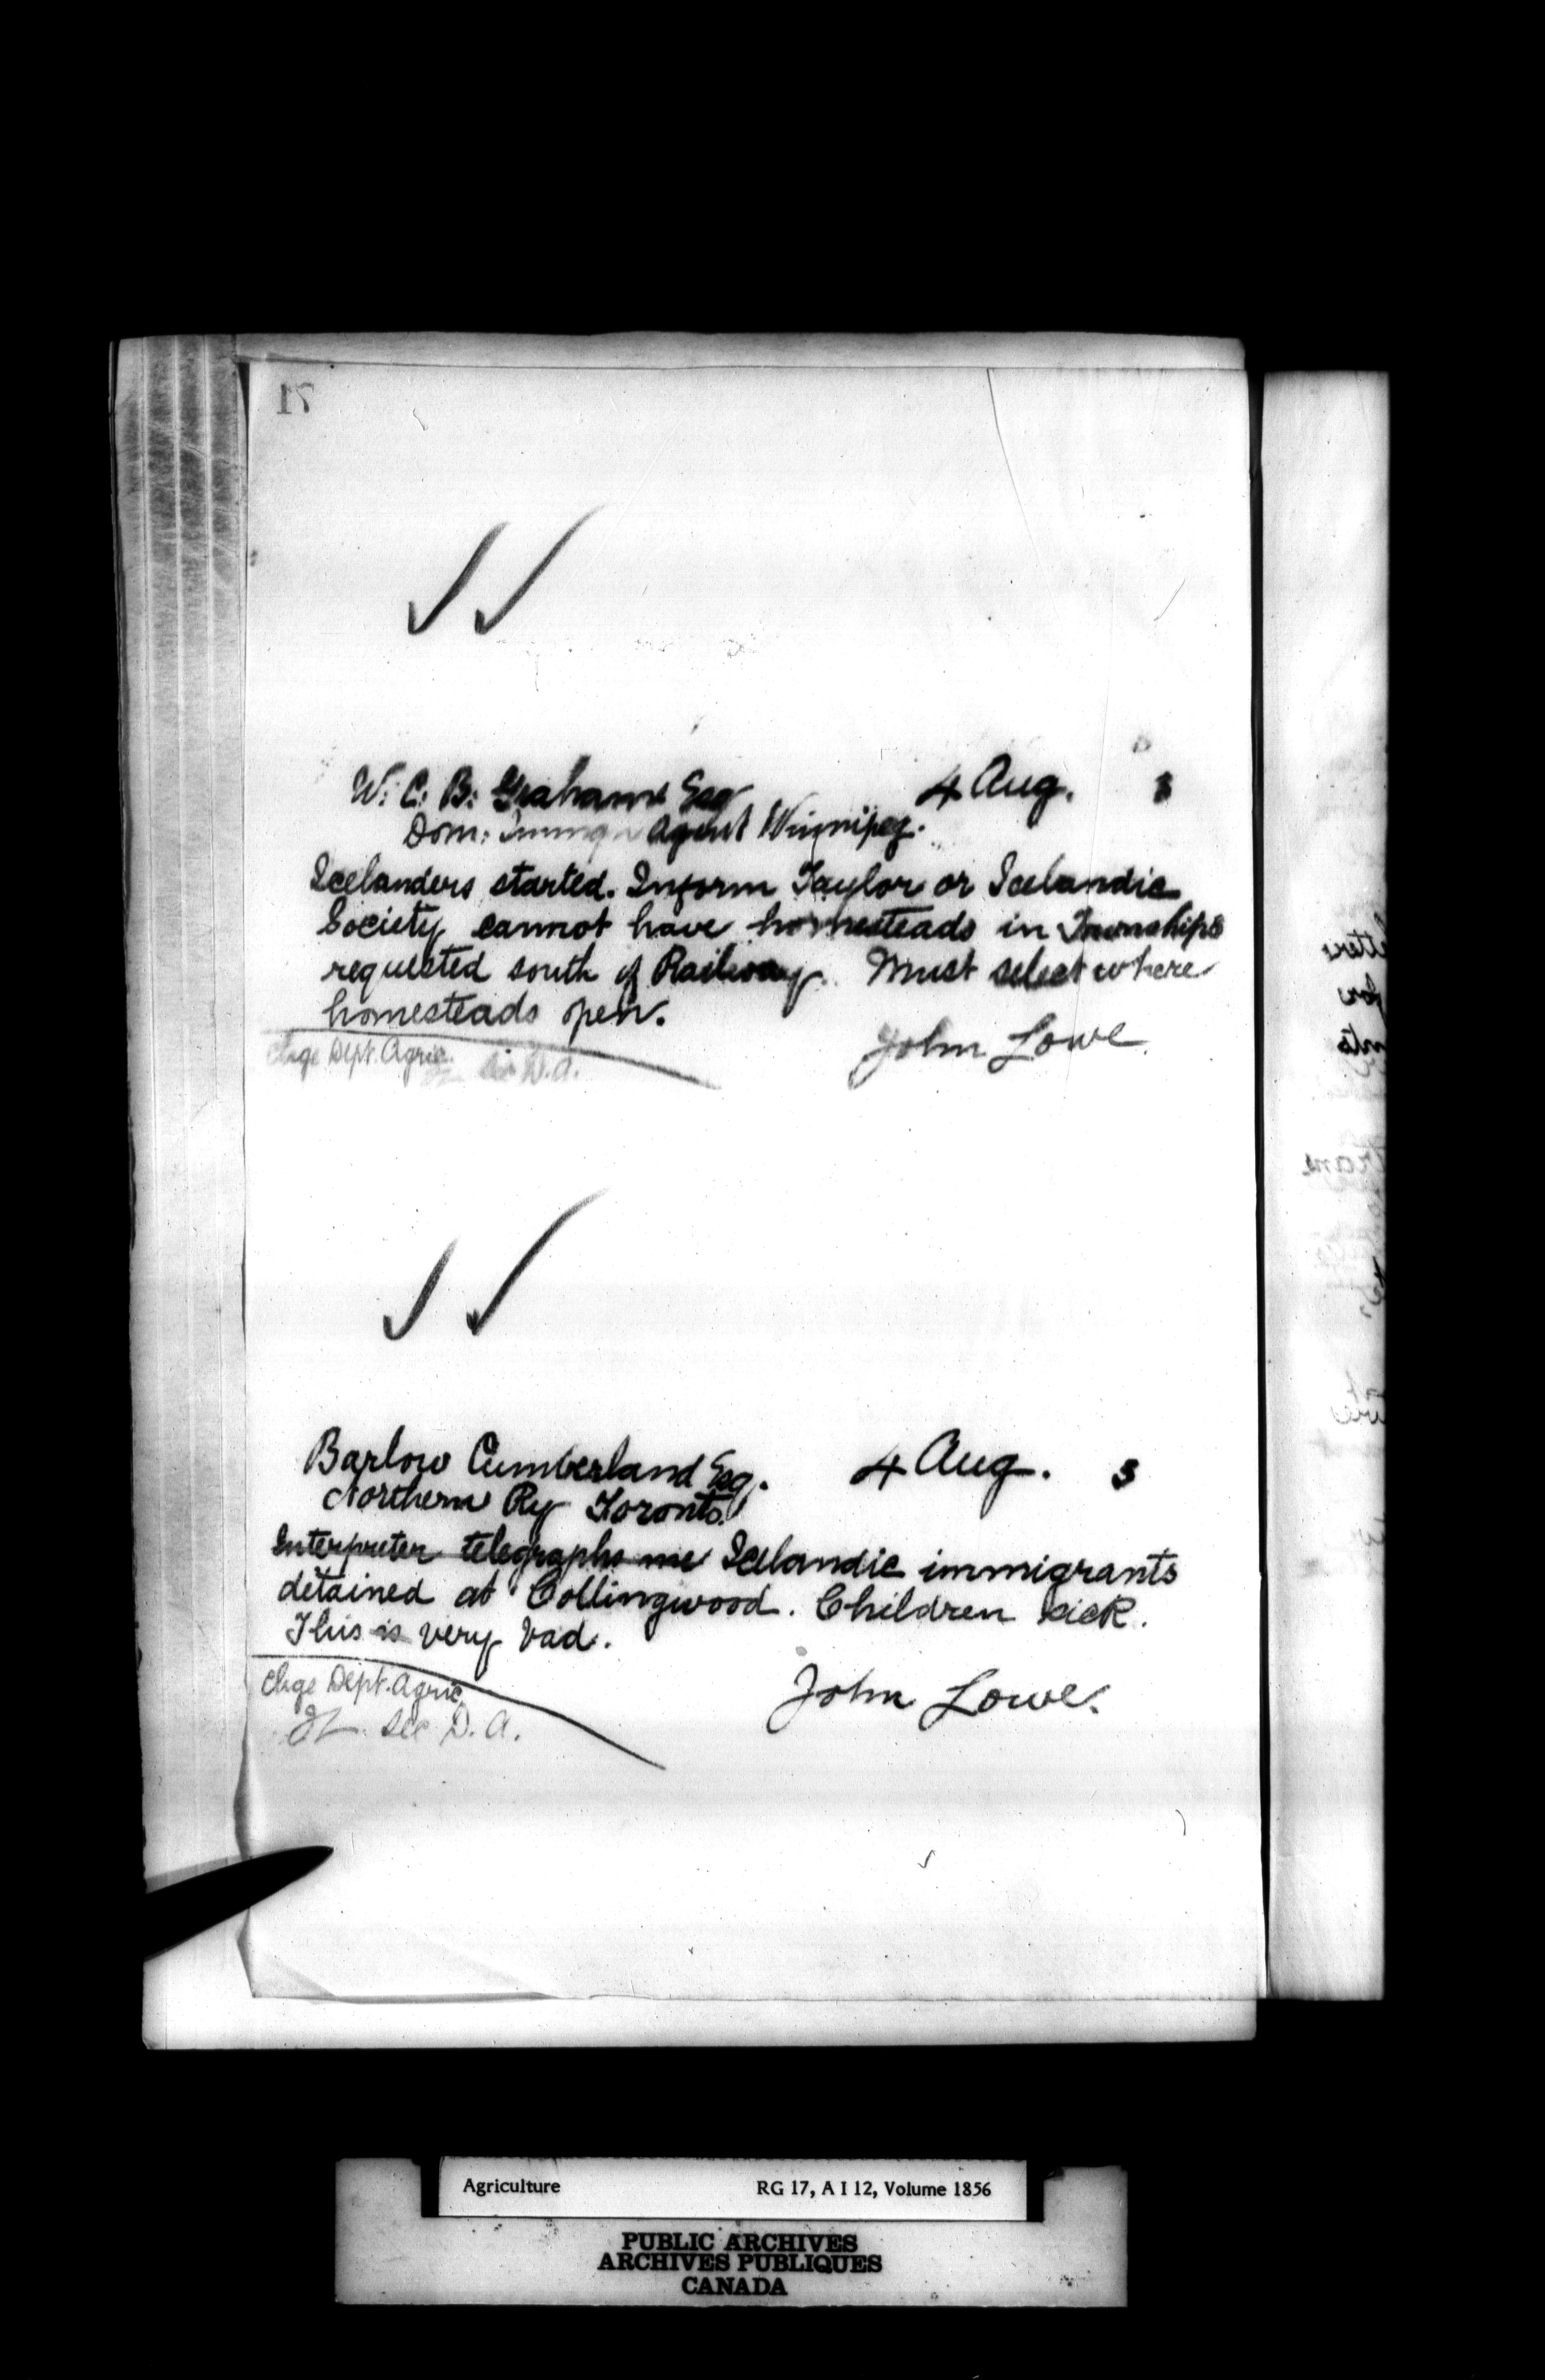 71
W. C. B. Grahame Esq 4 Aug. 3
Dom: Immign Agent Winnipeg.
Icelanders started. Inform Taylor or Icelandic
Society cannot have homesteads in Townships
requested south of Railway. Must select where
homesteads open.
John Lowe
Chge Dept. Agric.
JL Sec D.A.
Barlow Cumberland Esq. 4 Aug. 3
Northern Ry Toronto.
Interpreter telegraphs me Icelandic immigrants
detained at Collingwood. Children sick.
This is very bad.
John Lowe.
Chge Dept. Agric.
JL Sec D. A.
Agriculture RG 17, A I 12, Volume 1856
PUBLIC ARCHIVES
ARCHIVES PUBLIQUES
CANADA